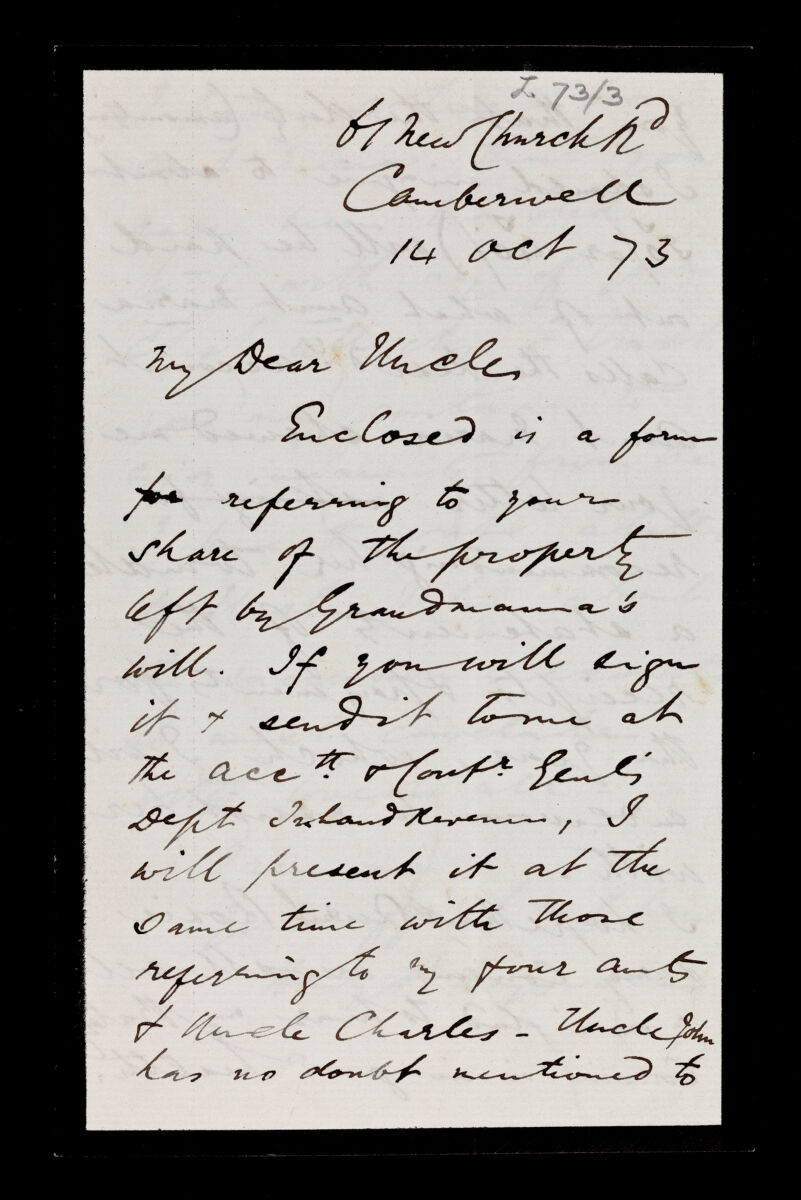 L 73/3
61 New Church Rd
Camberwell
14 Oct 73
My Dear Uncle,
Enclosed is a form
for referring to your
share of the property
left by Grandmama's
will. If you will sign
it & send it to me at
the Acctt. & Contr. Genl's
Dept Inland Revenue, I
will present it at the
same time with those
referring to my four aunts
& Uncle Charles - Uncle John
has no doubt mentioned to